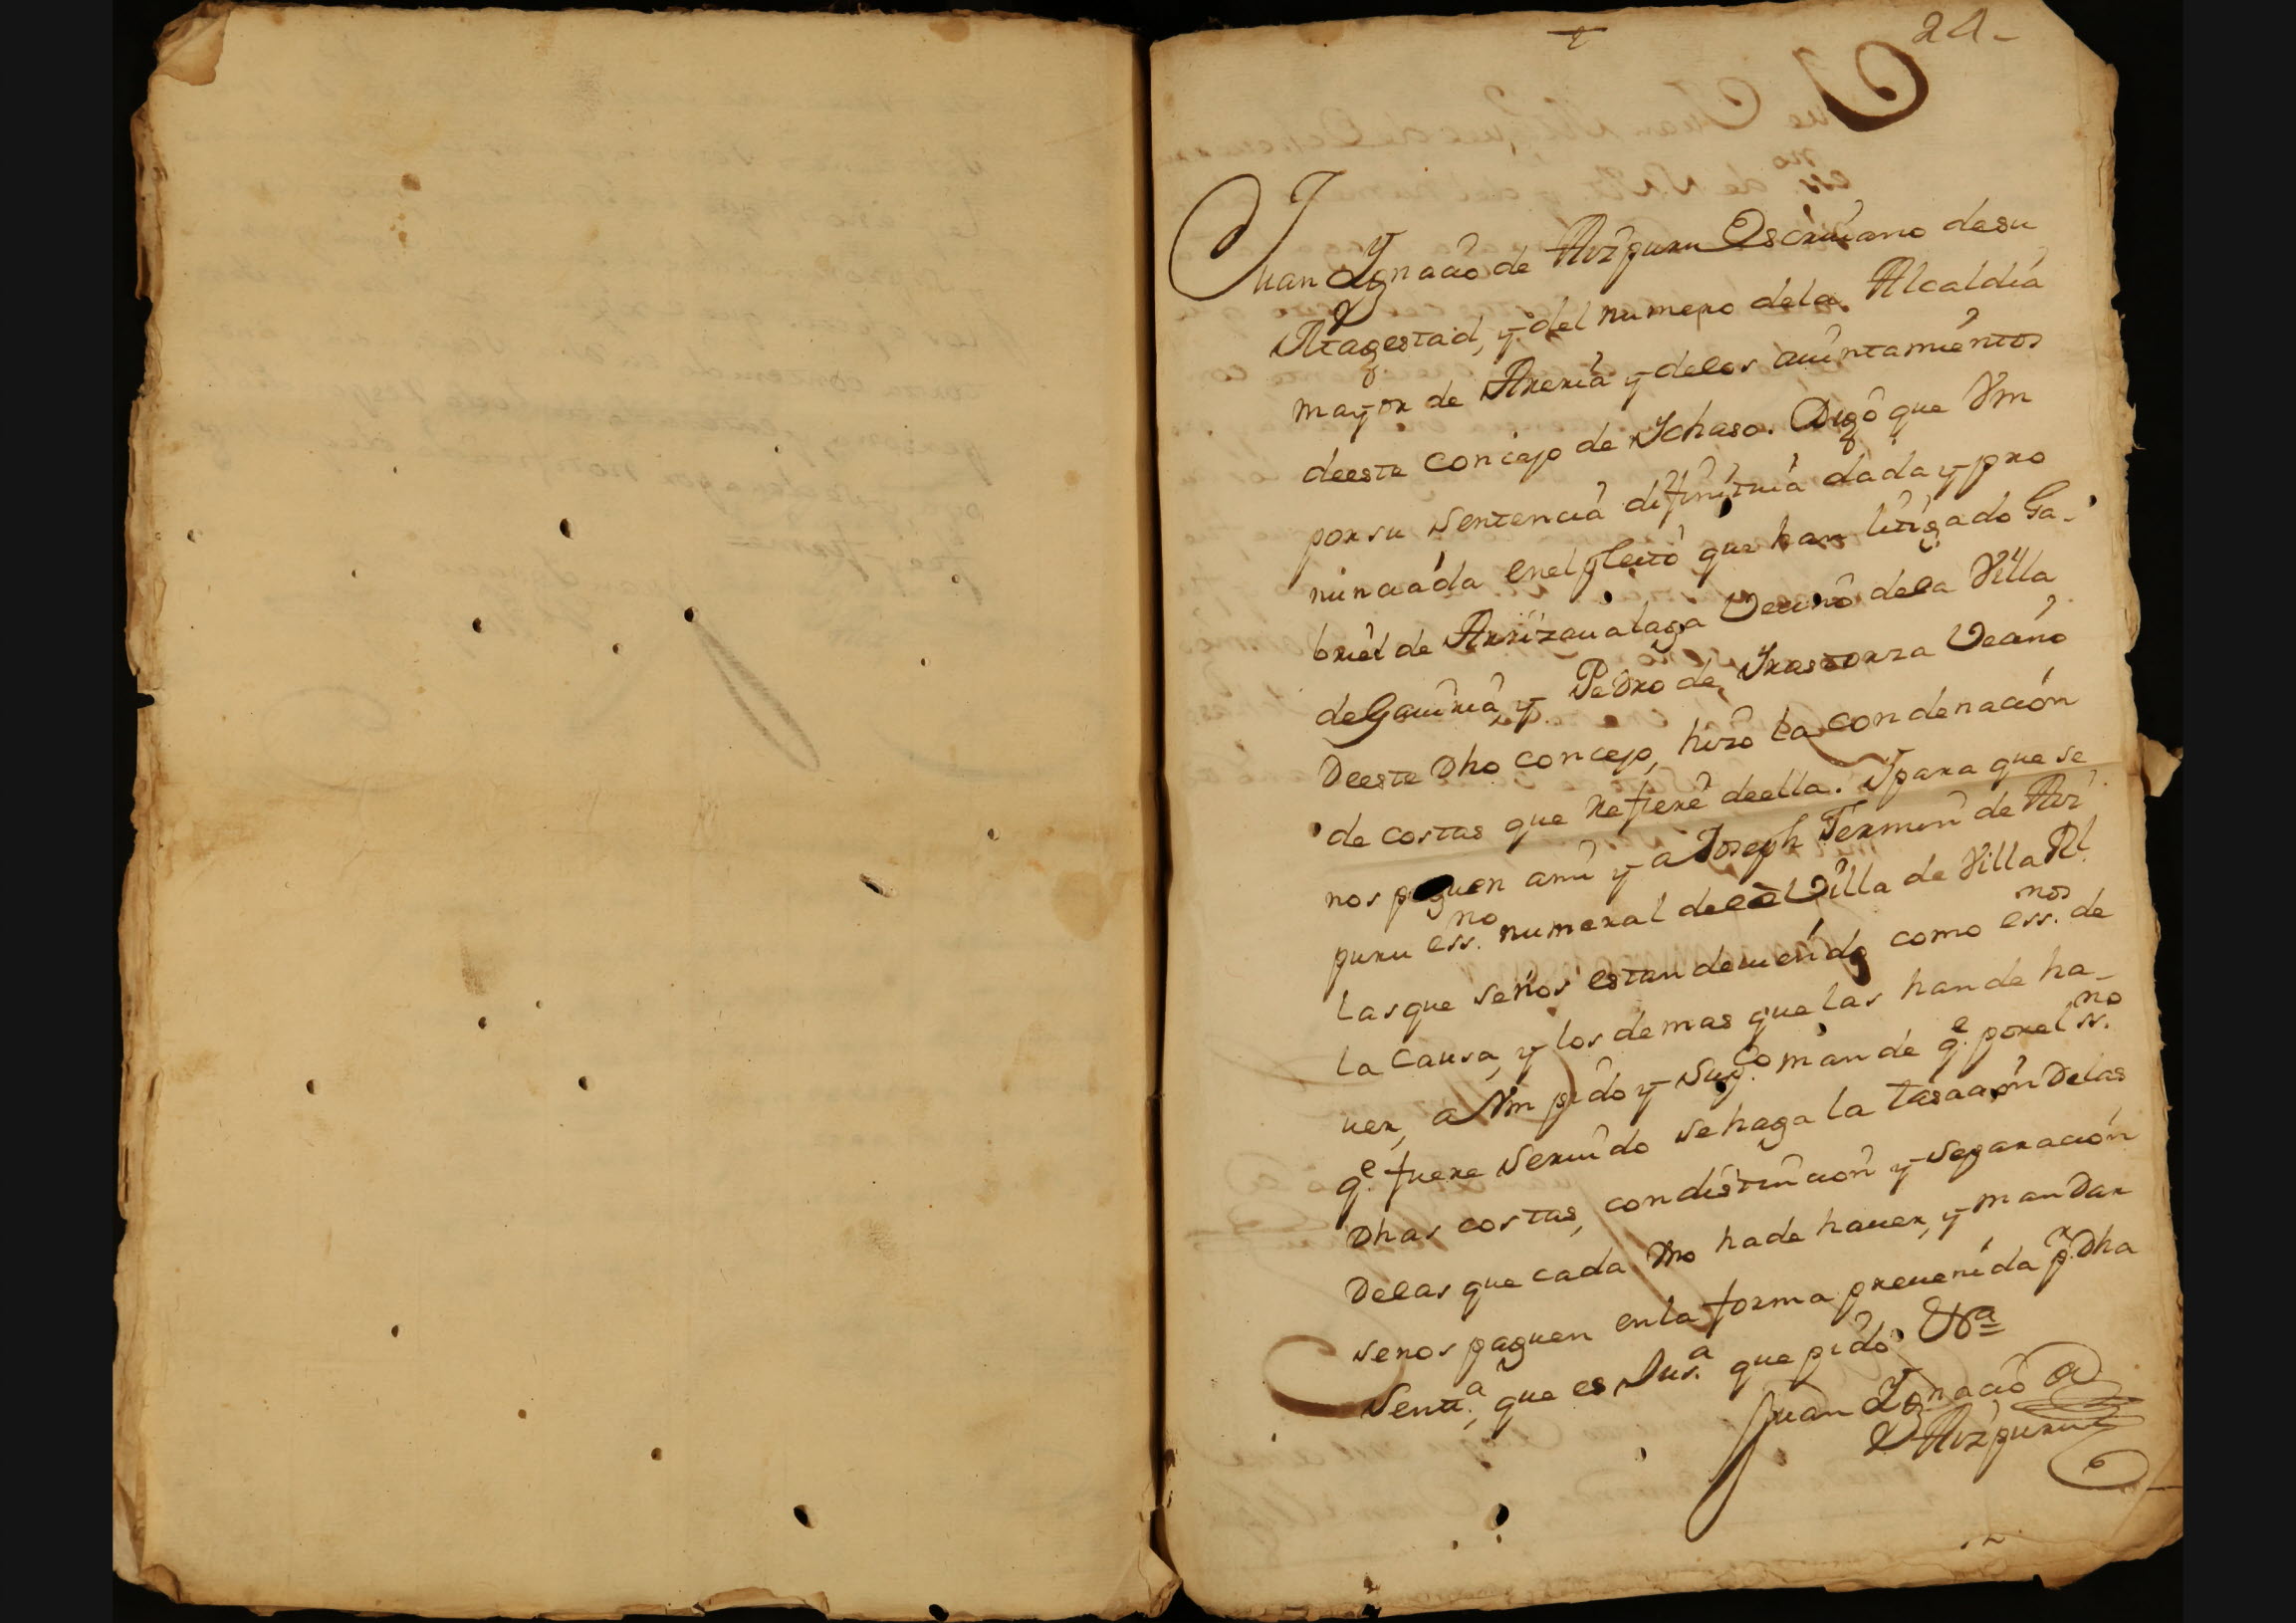 24
Juan Ygnacio de Aizpuru Escriuano desu
Magestad, y del numero dela Alcaldia
mayor de Areria y delos aiuntamientos
deeste concejo de Ichaso. Digo que Vm
por su Sentencia difinitiua dada y pro
nunciada enel pleito que han litigado Ga-
briel de Arrizaualaga Vecino dela Villa
de Gauiria, y Pedro de Yrastorza Vecino
Deeste Dho concejo, hizo la condenación
de costas que refiere deella. Y para que se
nos paguen ami y a Joseph Fermin de Aiz
puru ess.no numeral dela Villa de Villa Rl.
las que senos estan deuiendo como ess.nos de
la Causa, y los demas que las han de ha-
uer, a Vm pido y Supco mande q.e por el ss.no
q.e fuere Seruido se haga la tasación Delas
Dhas costas, con distincion y separación
Delas que cada Vno hade hauer, y mandar
senos paguen en la forma preuenida p.r Dha
Senta., que es Jus.a que pido Vra
Juan Ygnacio
D Aizpuru